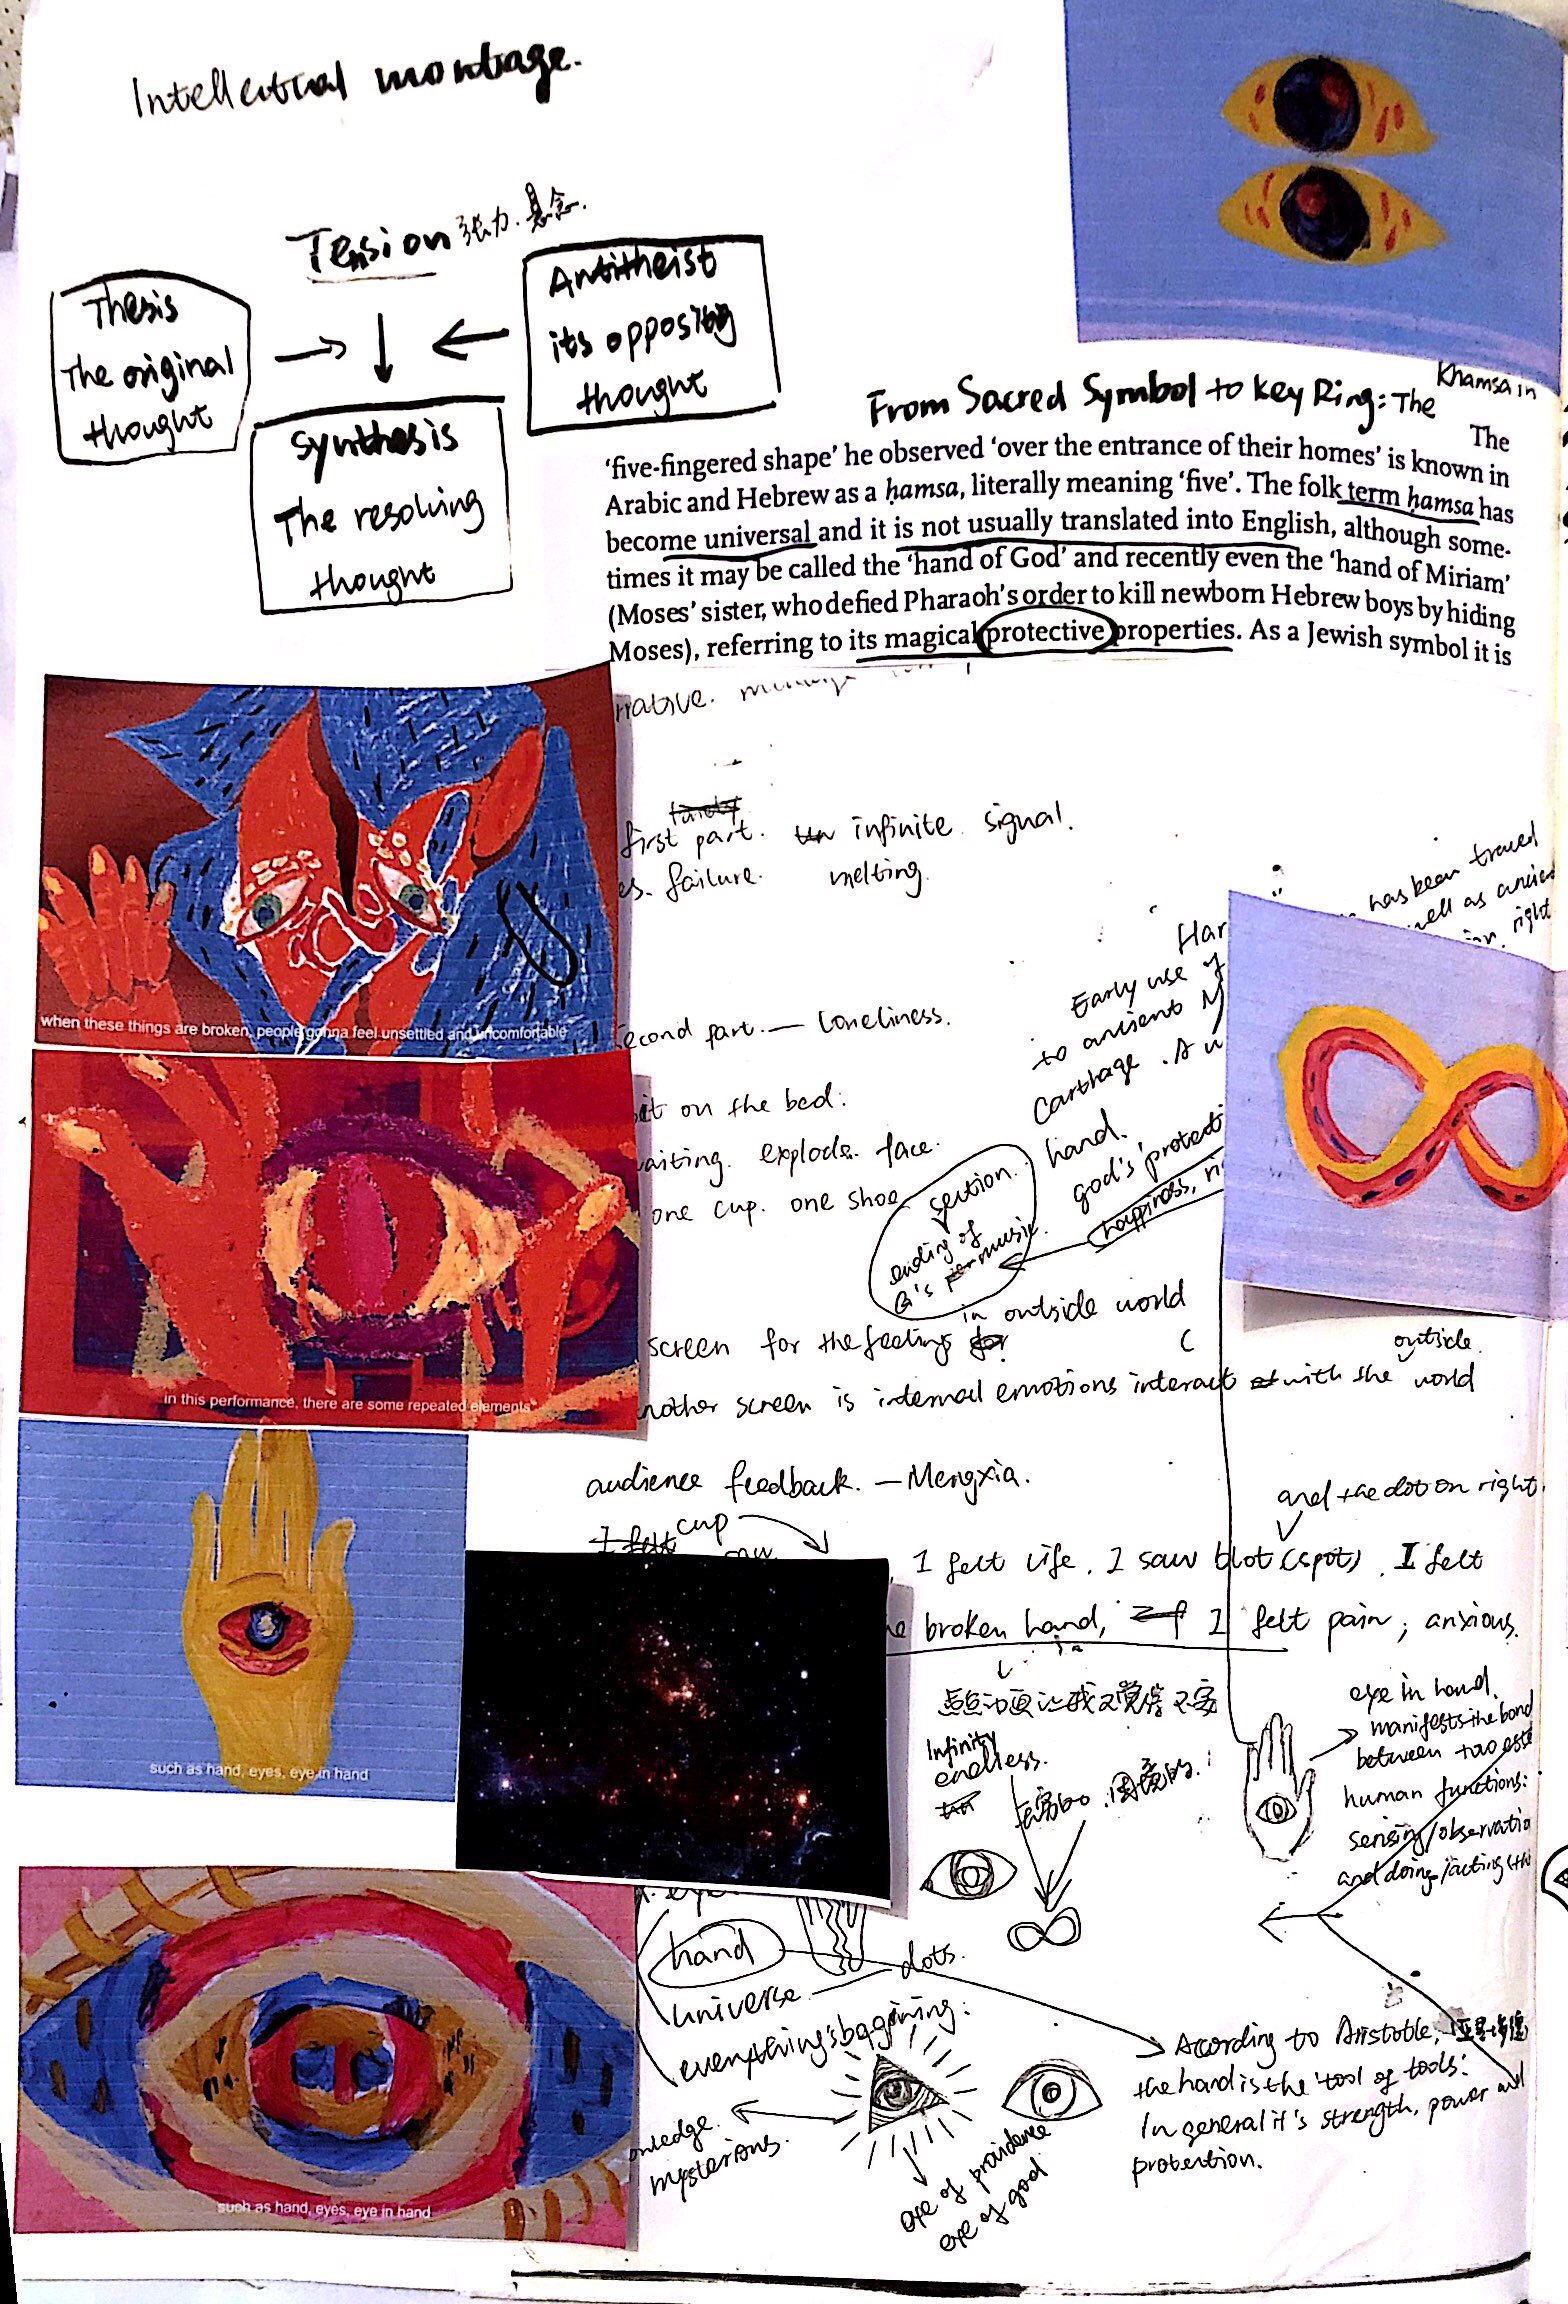 Intellectual montage.
Tension 张力.悬念.
Thesis
The original
thought
Antitheist
its opposing
thought
synthesis
The resolving
thought
From Sacred Symbol to Key Ring: The Khamsa in
The
'five-fingered shape' he observed 'over the entrance of their homes' is known in
Arabic and Hebrew as a ḥamsa, literally meaning 'five'. The folk term ḥamsa has
become universal and it is not usually translated into English, although some-
times it may be called the 'hand of God' and recently even the 'hand of Miriam'
(Moses' sister, who defied Pharaoh's order to kill newborn Hebrew boys by hiding
Moses), referring to its magical protective properties. As a Jewish symbol it is
first part. infinite signal.
failure. melting.
when these things are broken, people gonna feel unsettled and uncomfortable
has been traced
well as
right
Early use of
to ancient
Carthage. A
hand.
god's protect
happiness,
econd part. — Loneliness.
on the bed.
aiting. explode. face.
one cup. one shoe
section.
ending of
G's music.
in this performance, there are some repeated elements
in outside world
screen for the feeling
outside
nother screen is internal emotions interact with the world
audience feedback. — Mengxia.
and the dot on right.
cup
I felt life. I saw blot (spot). I felt
broken hand, I felt pain, anxious.
such as hand, eyes, eye in hand
Infinity
endless.
eye in hand.
manifests the bond
between two
human functions:
sensing/observatio
and doing/acting
hand
universe dots.
everything's bagining:
mysterious.
eye of providence
eye of god
According to Aristotle,
the hand is the 'tool of tools'.
In general it's strength, power and
protention.
such as hand, eyes, eye in hand